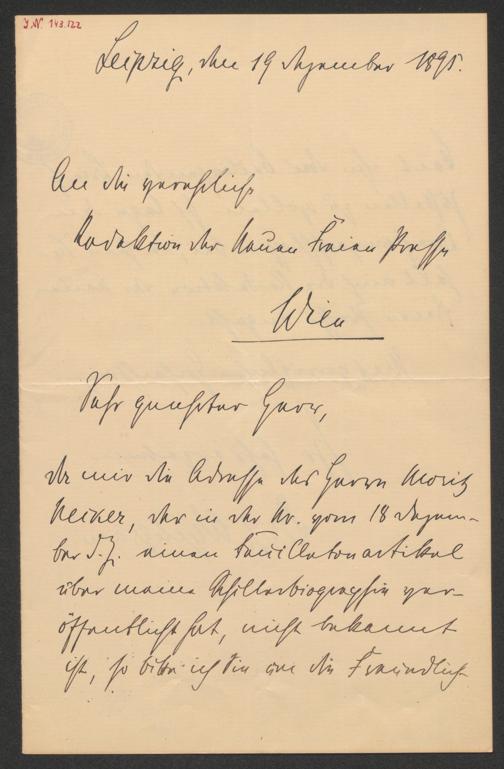 J.N. 143.122
Leipzig, den 19 Dezember 1895.
An die verehrliche
Redaktion der Neuen Freien Presse
Wien
Sehr geehrter Herr,
da mir die Adresse des Herrn Moritz
Necker, der in der Nr. vom 18 Dezem-
ber d. J. einen Feuilletonartikel
über meine Schillerbiographie ver-
öffentlicht hat, nicht bekannt
ist, so bitte ich Sie um die Freundlich-